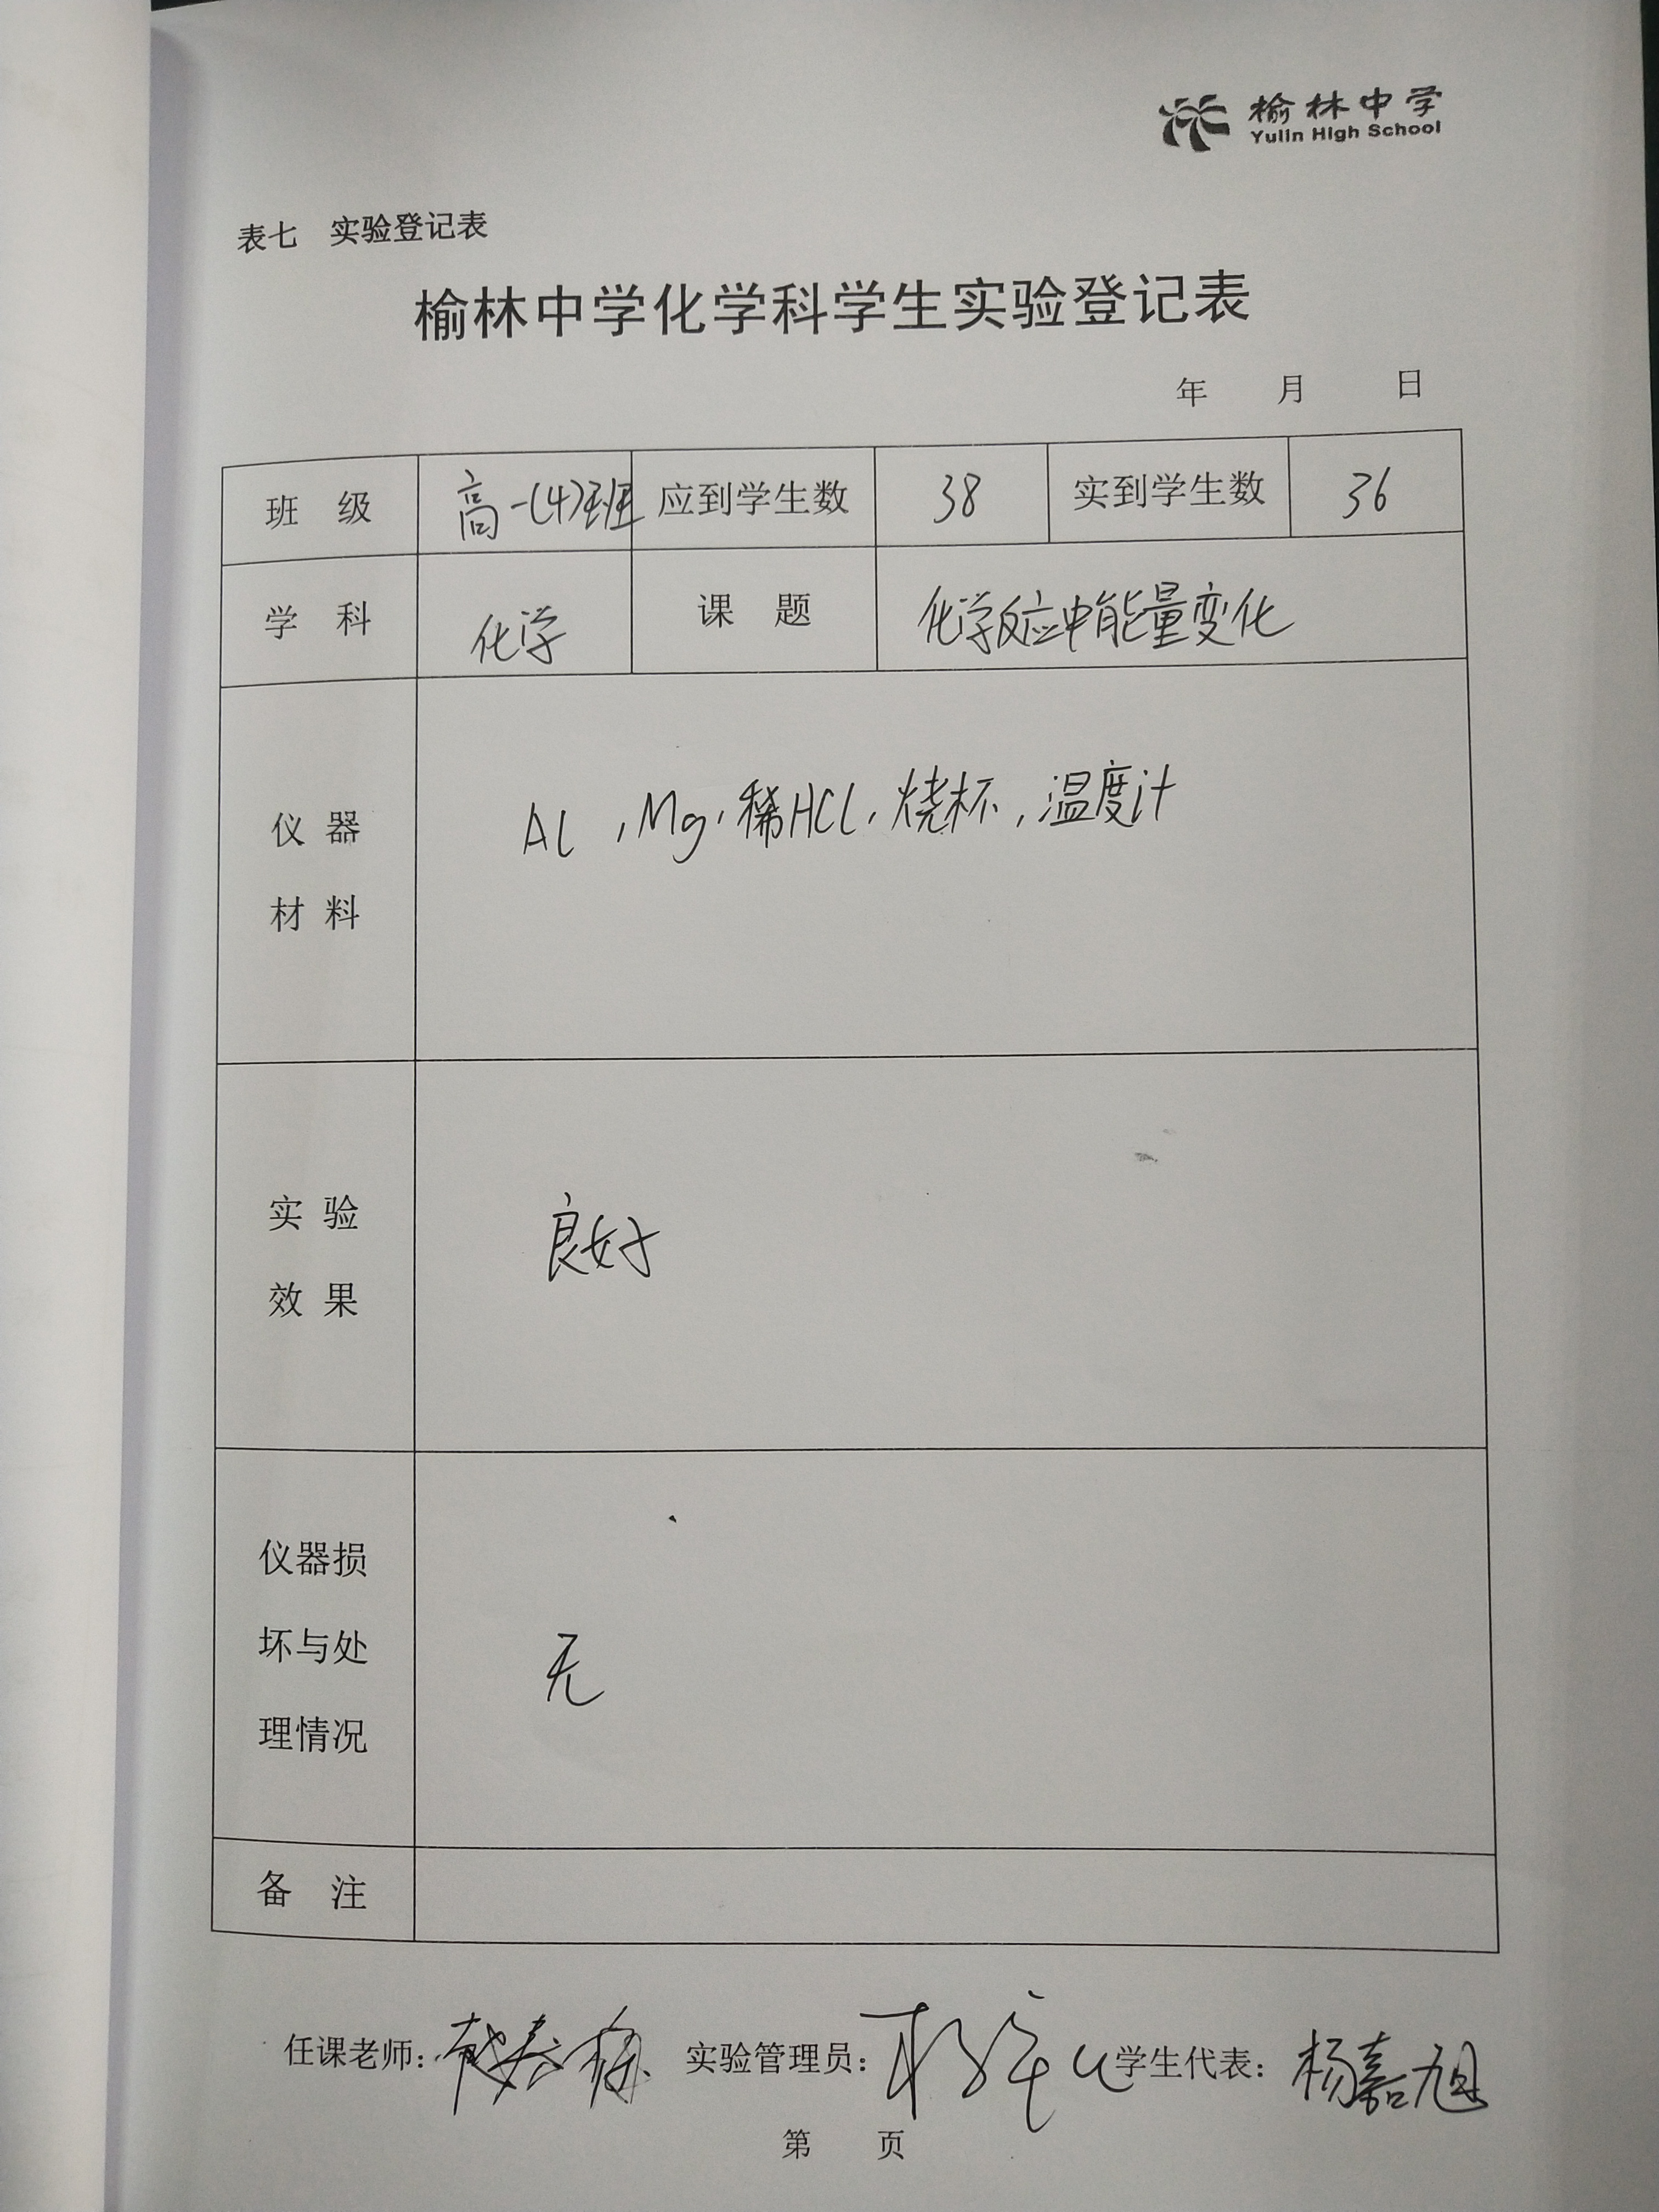 榆林中学
Yulin High School
表七 实验登记表
榆林中学化学科学生实验登记表
年 月 日
班 级 高一(4)班 应到学生数 38 实到学生数 36
学 科 化学 课 题 化学反应中能量变化
仪 器
材 料
Al,Mg,稀HCl,烧杯,温度计
实 验
效 果
良好
仪器损
坏与处
理情况
无
备 注
任课老师: 实验管理员: 学生代表: 杨嘉旭
第 页